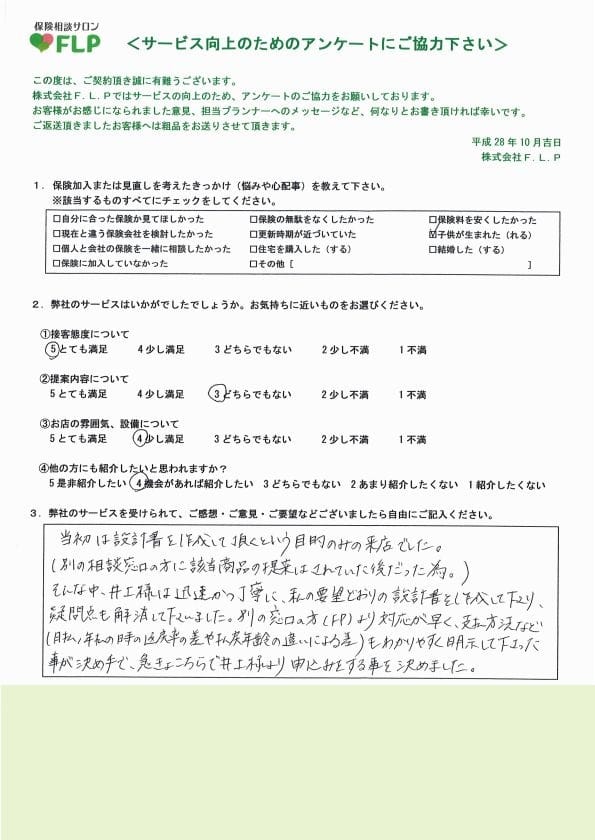 保険相談サロン
FLP
＜サービス向上のためのアンケートにご協力下さい＞
この度は、ご契約頂き誠に有難うございます。
株式会社Ｆ．Ｌ．Ｐではサービスの向上のため、アンケートのご協力をお願いしております。
お客様がお感じになられました意見、担当プランナーへのメッセージなど、何なりとお書き頂ければ幸いです。
ご返送頂きましたお客様へは粗品をお送りさせて頂きます。
平成 28 年 10 月吉日
株式会社Ｆ．Ｌ．Ｐ
１．保険加入または見直しを考えたきっかけ（悩みや心配事）を教えて下さい。
※該当するものすべてにチェックをしてください。
□自分に合った保険か見てほしかった □保険の無駄をなくしたかった □保険料を安くしたかった
□現在と違う保険会社を検討したかった □更新時期が近づいていた ☑子供が生まれた（れる）
□個人と会社の保険を一緒に相談したかった □住宅を購入した（する） □結婚した（する）
□保険に加入していなかった □その他［ ］
２．弊社のサービスはいかがでしたでしょうか。お気持ちに近いものをお選びください。
①接客態度について
５とても満足 ４少し満足 ３どちらでもない ２少し不満 １不満
②提案内容について
５とても満足 ４少し満足 ３どちらでもない ２少し不満 １不満
③お店の雰囲気、設備について
５とても満足 ４少し満足 ３どちらでもない ２少し不満 １不満
④他の方にも紹介したいと思われますか？
５是非紹介したい ４機会があれば紹介したい ３どちらでもない ２あまり紹介したくない １紹介したくない
３．弊社のサービスを受けられて、ご感想・ご意見・ご要望などございましたら自由にご記入ください。
当初は設計書を作成して頂くという目的のみの来店でした。
（別の相談窓口の方に該当商品の提案はされていた後だった為。）
そんな中、井上様は迅速かつ丁寧に、私の要望どおりの設計書を作成して下さり、
疑問点も解消して下さいました。別の窓口の方（FP）より対応が早く、支払方法など
（月払い年払の時の返戻率の差や払戻年齢の違いによる差）もわかりやすく明示して下さった
事が決め手で、急きょこちらで井上様より申込みをする事を決めました。